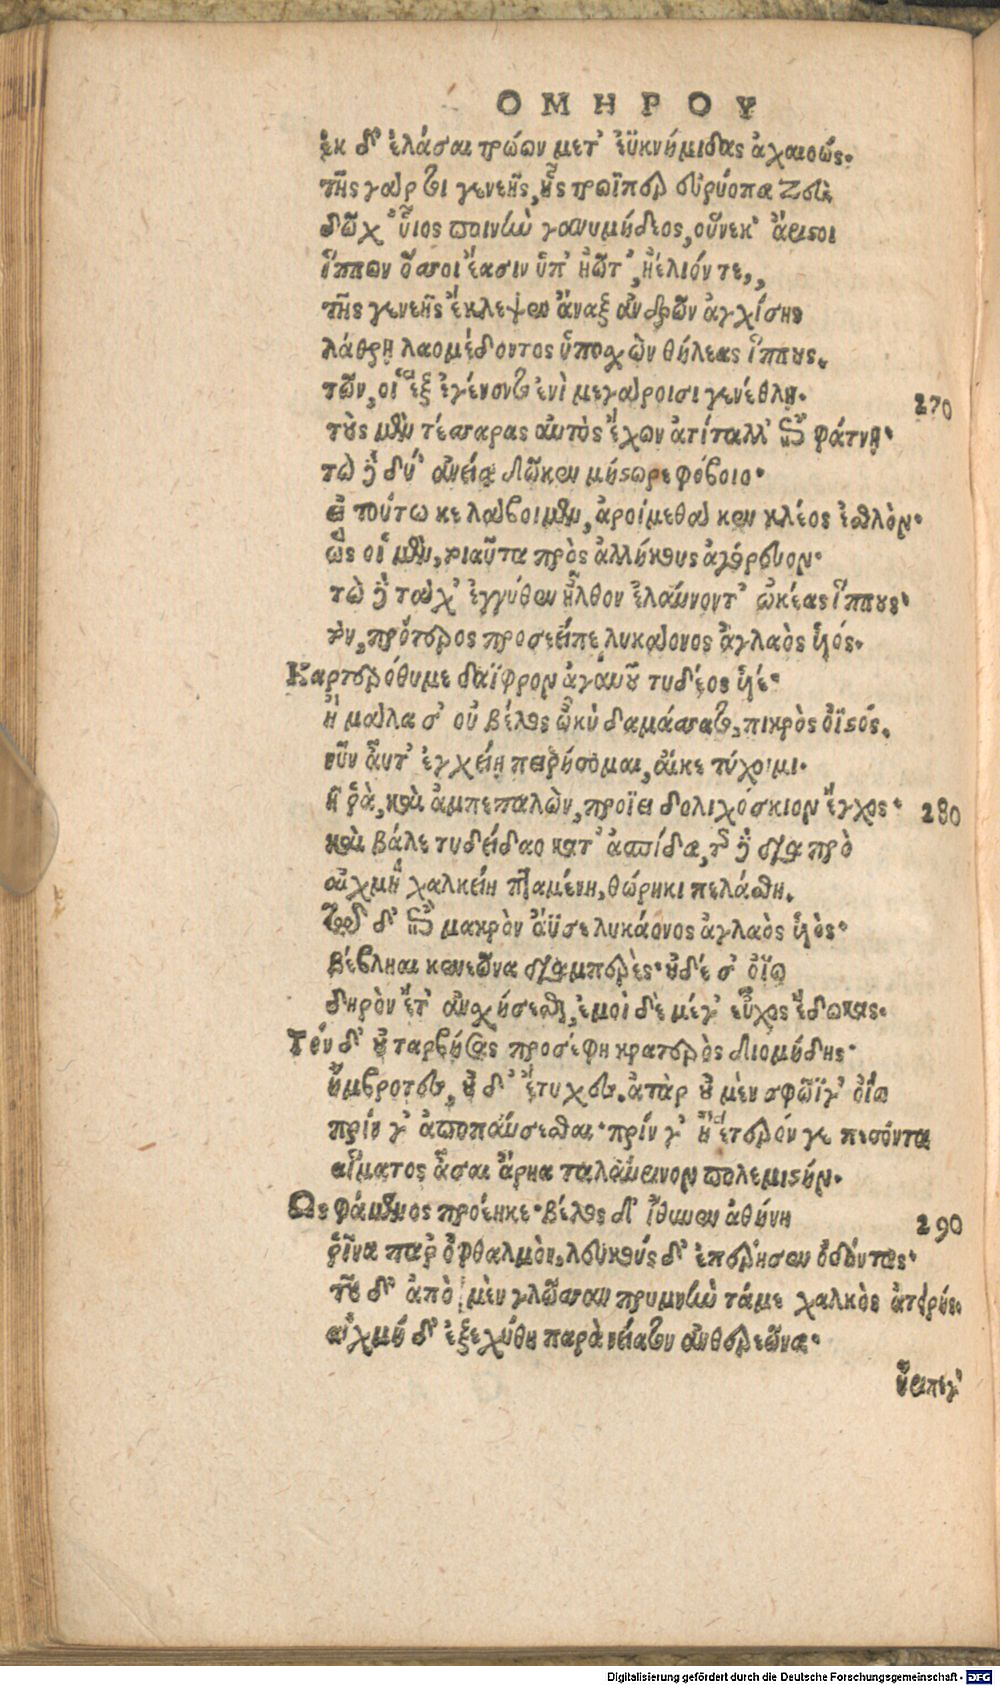 ΟΜΗΡΟΥ
ἐκ δ' ἐλάσαι τρώων μετ' ἐϋκνήμιδας ἀχαιούς.
τῆς γάρ τοι γενεῆς, ἧς τρωῒ περ εὐρύοπα Ζεὺς
δῶχ' ὗιος ποινὴν γανυμήδεος, οὕνεκ' ἄριστοι
ἵππων ὅσσοι ἔασιν ὑπ' ἠῶτ', ἠέλιόν τε,
τῆς γενεῆς ἔκλεψεν ἄναξ ἀνδρῶν ἀγχίσης
λάθρῃ λαομέδοντος ὑποσχὼν θήλεας ἵππους.
τῶν, οἱ ἓξ ἐγένοντο ἐνὶ μεγάροισι γενέθλη. 270
τοὺς μὲν τέσσαρας αὐτὸς ἔχων ἀτίταλλ' ἐπὶ φάτνῃ.
τὼ δὲ δύ' αἰνείᾳ δῶκεν μήστωρε φόβοιο.
εἰ τούτω κε λάβοιμεν, ἀροίμεθά κεν κλέος ἐσθλόν.
ὣς οἱ μὲν, τοιαῦτα πρὸς ἀλλήλους ἀγόρευον.
τὼ δὲ τάχ' ἐγγύθεν ἦλθον ἐλαύνοντ' ὠκέας ἵππους.
τὸν, πρότερος προσέειπε λυκάονος ἀγλαὸς ὑιός.
Καρτερόθυμε δαΐφρον ἀγαυοῦ τυδέος ὑιέ.
ἦ μάλα σ' οὐ βέλος ὠκὺ δαμάσσατο, πικρὸς ὀϊστός.
νῦν αὖτ' ἐγχείῃ πειρήσομαι, αἴκε τύχοιμι.
ἦ ῥὰ, καὶ ἀμπεπαλὼν, προΐει δολιχόσκιον ἔγχος. 280
καὶ βάλε τυδείδαο κατ' ἀσπίδα, τῆς δὲ διαπρὸ
αἰχμὴ χαλκείη πταμένη, θώρηκι πελάσθη.
τῷ δ' ἐπὶ μακρὸν ἄϋσε λυκάονος ἀγλαὸς ὑιός.
βέβληαι κενεῶνα διαμπερές. οὐδέ σ' ὀΐω
δηρὸν ἔτ' ἀνσχήσεσθαι, ἐμοὶ δὲ μέγ' εὖχος ἔδωκας.
Τὸν δ' οὐ ταρβήσας προσέφη κρατερὸς διομήδης.
ἤμβροτες, οὐδ' ἔτυχες. ἀτὰρ οὐ μὲν σφῶϊγ' ὀΐω
πρίν γ' ἀποπαύσεσθαι. πρίν γ' ἢ ἕτερόν γε πεσόντα
αἵματος ἆσαι ἄρηα ταλαύρινον πολεμιστήν.
Ὣς φάμενος προέηκε. βέλος δ' ἴθυνεν ἀθήνη 290
ῥῖνα παρ' ὀφθαλμὸν, λευκοὺς δ' ἐπέρησεν ὀδόντας.
τοῦ δ' ἀπὸ μὲν γλῶσσαν πρυμνὴν τάμε χαλκὸς ἀτειρής.
αἰχμὴ δ' ἐξεχύθη παρὰ νείατον ἀνθερεῶνα.
Digitalisierung gefördert durch die Deutsche Forschungsgemeinschaft - DFG